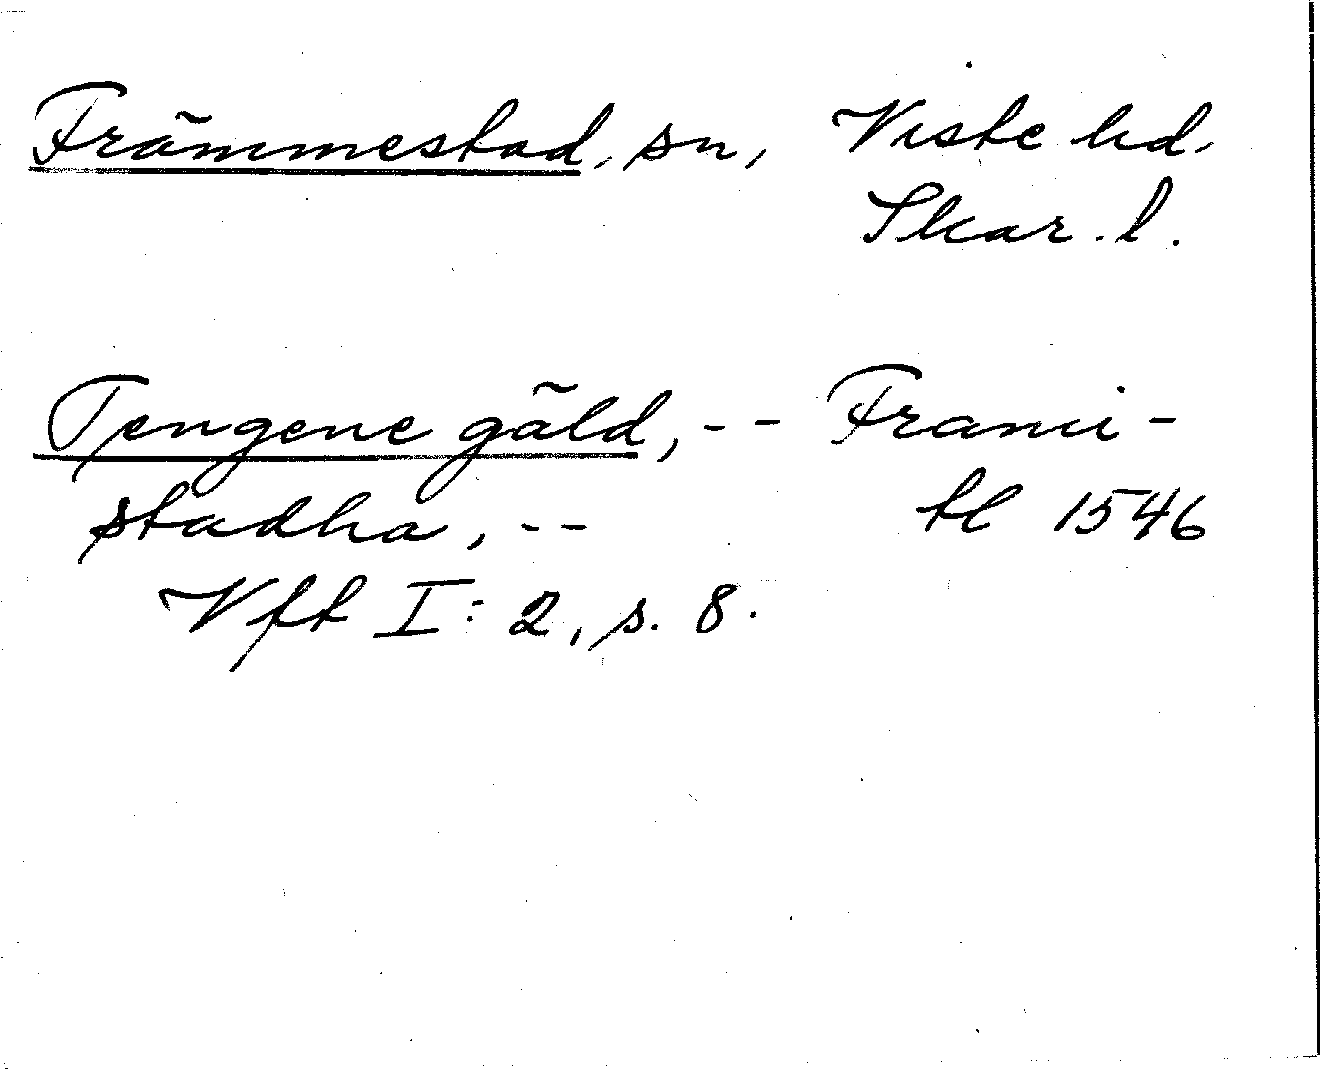 Främmestad, sn, Viste hd,
Skar. l.
Tengene gäld, -- Frami-
stadha, -- tl 1546
Vft I: 2, s. 8.